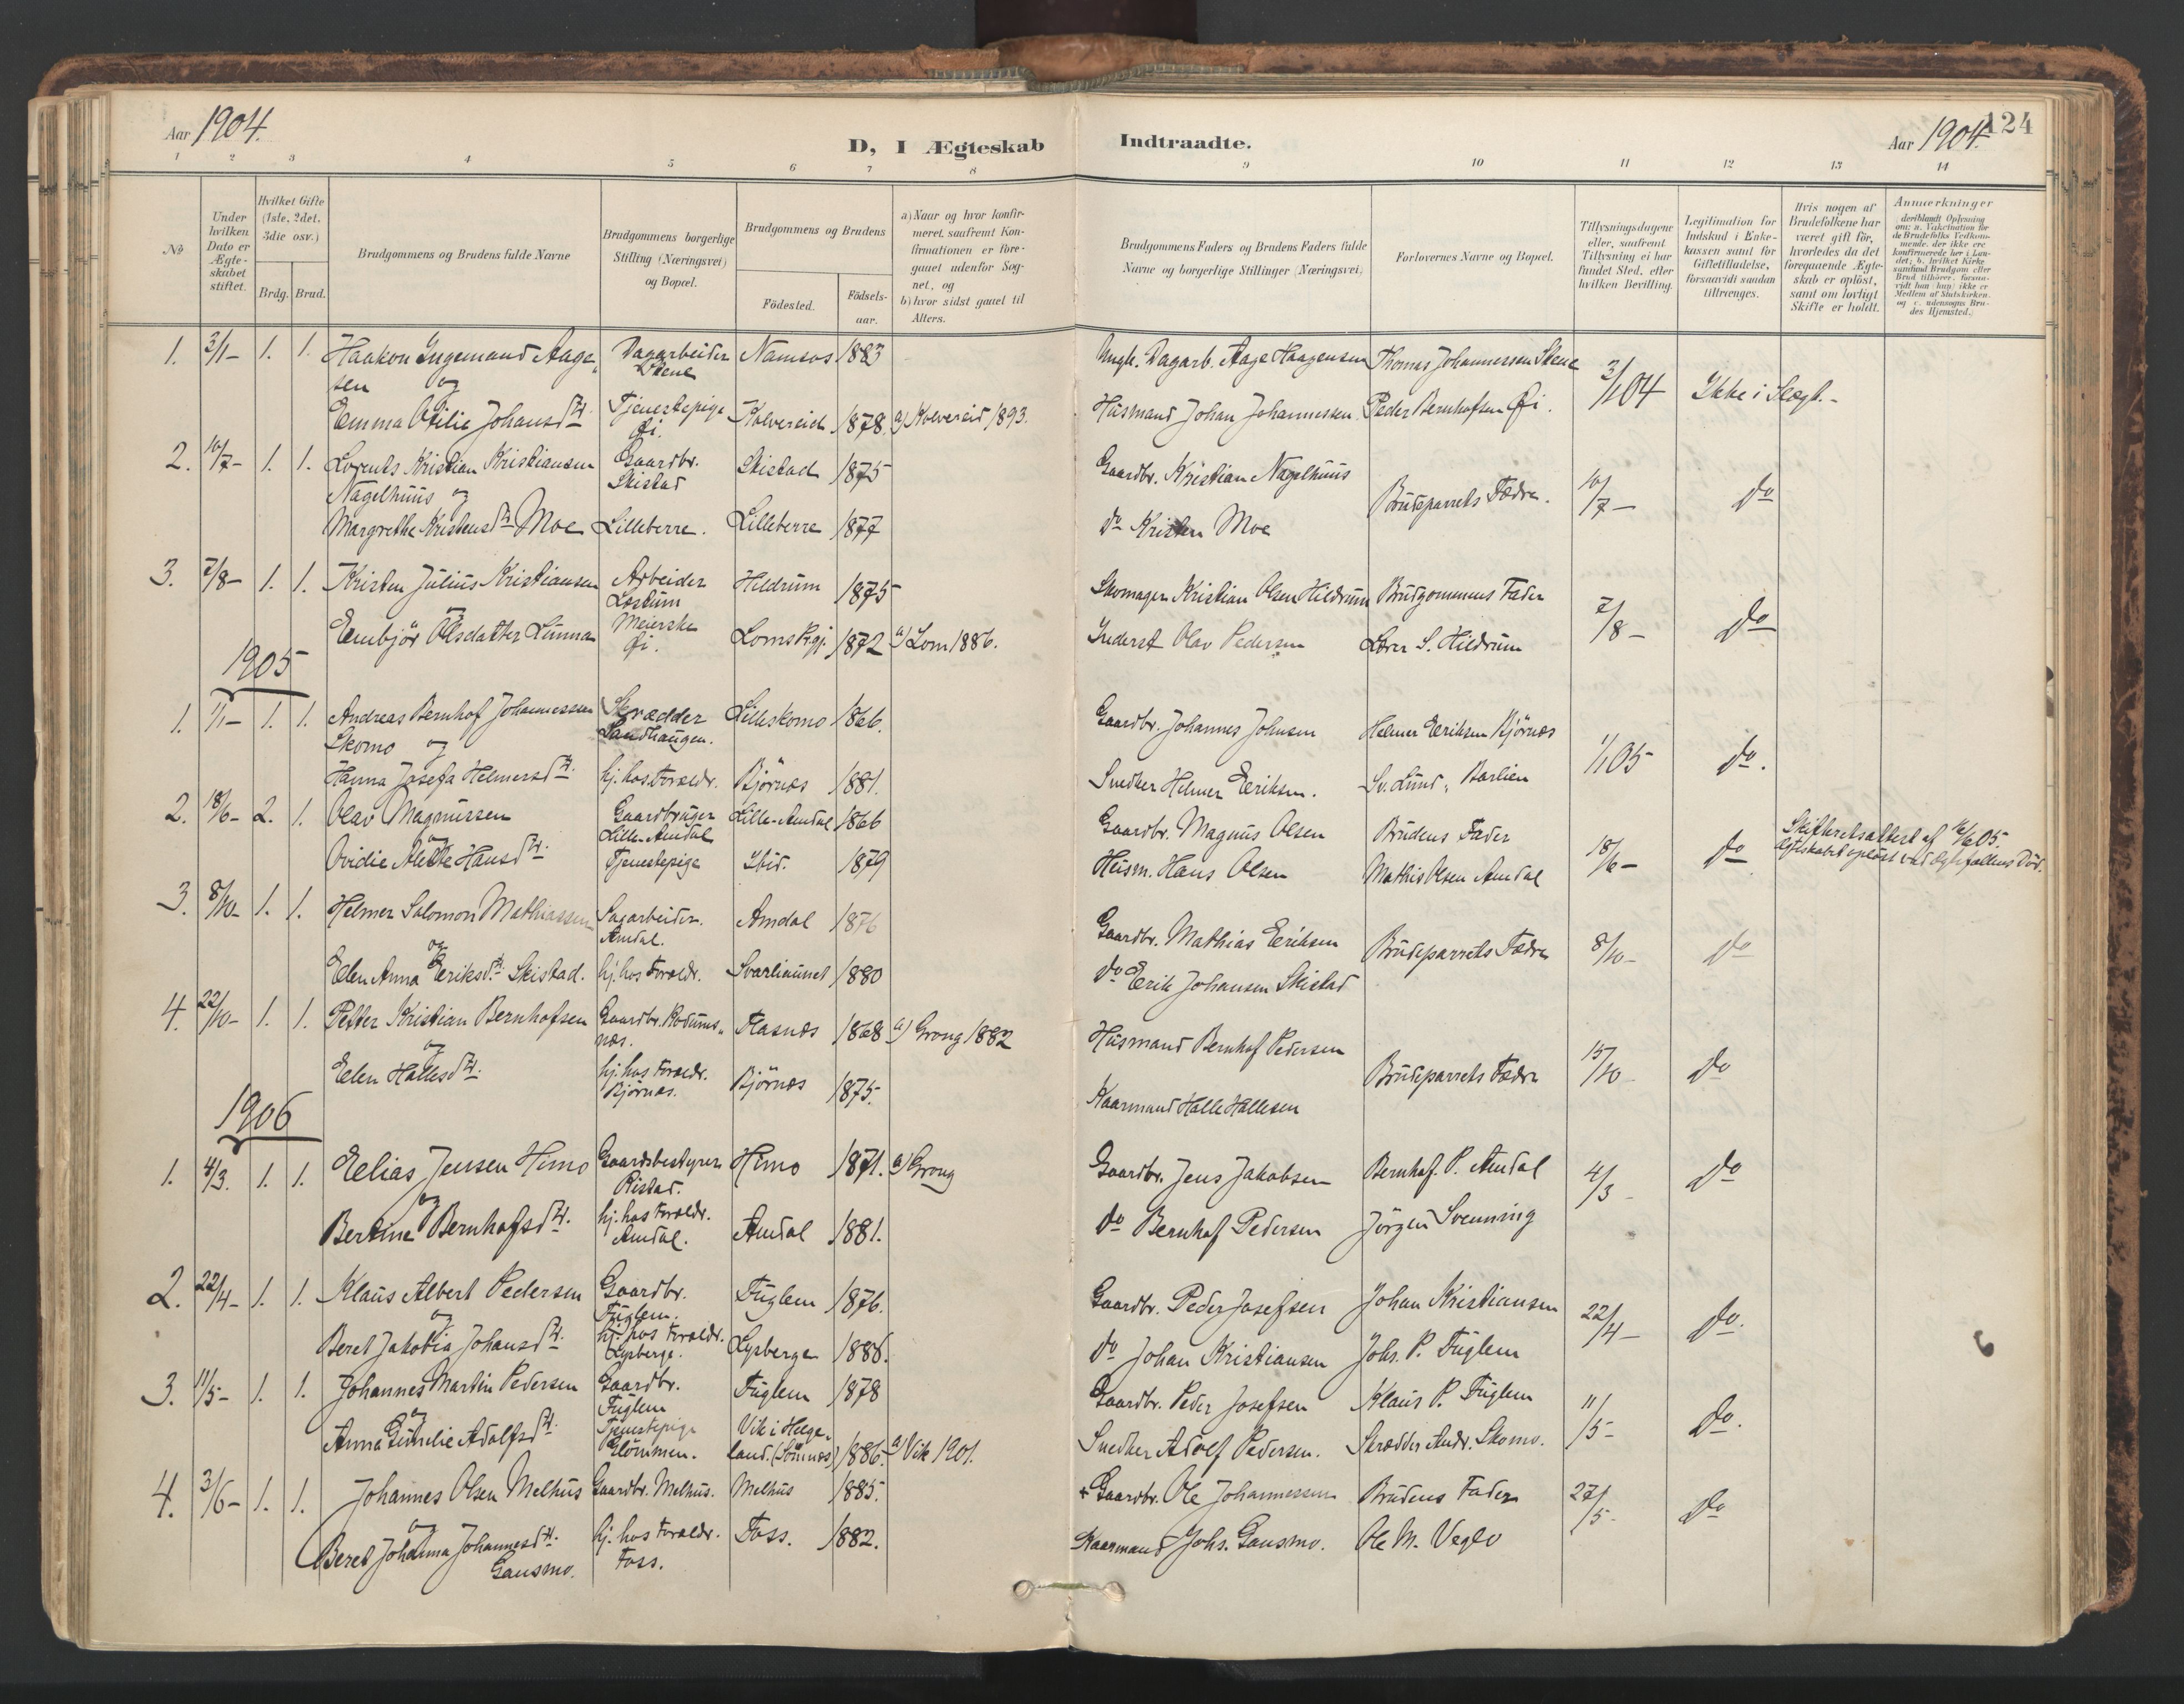 Aar 1904.
D, I Ægteskab Indtraadte.
Aar 1904.
124
1 2 3 4 5 6 7 8 9 10 11 12 13 14
No
Under hvilken Dato er Ægteskabet stiftet.
Hvilket Gifte (1ste, 2det, 3die osv.)
Brdg. Brud.
Brudgommens og Brudens fulde Navne
Brudgommens borgerlige Stilling (Næringsvei) og Bopæl.
Brudgommens og Brudens
Födested.
Födsels-aar.
a) Naar og hvor konfir-
meret, saafremt Kon-
firmationen er fore-
gaaet udenfor Sog-
net, og
b) hvor sidst gaaet til
Alters.
Brudgommens Faders og Brudens Faders fulde
Navne og borgerlige Stillinger (Næringsvei)
Forlovernes Navne og Bopæl.
Tillysningsdagene
eller, saafremt
Tillysning ei har
fundet Sted, efter
hvilken Bevilling.
Legitimation for
Indskud i Enke-
kassen samt for
Giftetilladelse,
forsaavidt saadan
tiltrænges.
Hvis nogen af
Brudefolkene har
været gift för,
hvorledes da det
foregaaende Ægte-
skab er oplöst,
samt om lovligt
Skifte er holdt.
Anmærkninger
(deriblandt Oplysning
om: a. Vakcination for
de Brudefolks Vedkom-
mende, der ikke ere
konfirmerede her i Lan-
det; b. hvilket Kirke-
samfund Brudgom eller
Brud tilhörer, forsaa-
vidt han (hun) ikke er
Medlem af Statskirken,
og c. udensogns Bru-
des Hjemsted.)
1. 3/1- 1. 1. Haakon Ingemand Aage- Dagarbeider Namsos 1883 Ungk. Dagarb. Aage Haagensen Thomas Johannessen Skene 3/1 04 Ikke i Slægt.-
sen og Skene
Emma Otilie Johansdtr. Tjenestepige Kolvereid 1878. a) Kolvereid 1893. Husmand Johan Johannessen. Peder Bernhofsen Øi.
Øi.
2. 10/7- 1. 1. Lorents Kristian Kristiansen Gaardbr. Skistad 1875 Gaardbr. Kristian Nagelhuus Brudeparrets Fædre. 10/7- do
Nagelhuus og Skistad
Margrethe Kristensdtr Moe Lilleberre. Lilleberre 1877 do Kristen Moe
3. 7/8- 1. 1. Kristen Julius Kristiansen Arbeider Hildrum 1875 Skomager Kristian Olsen Hildrum Brudgommens Fader 7/8- do
og
Embjör Olsdatter Meierske Loms Pgj. 1872 a) Lom 1886. Inderst Olav Pedersen Lærer S. Hildrum
Øi.
1905
1. 1/1- 1. 1. Andreas Bernhof Johannessen Skrædder Lilleskomo 1866. Gaardbr. Johannes Johnsen Helmer Eriksen Björnes 1/1 05 do.
Skomo og Sandhaugen.
Hanna Josefa Helmersdtr. hj. hos Foreldr. Björnes 1881. Snedker Helmer Eriksen. Sv. Lund, Barlien
2. 18/6- 2. 1. Olav Magnussen Gaardbruger Lille-Amdal 1866 Gaardbr. Magnus Olsen Brudens Fader 18/6- do Skifteretsattest af 16/6 05.
og Lille-Amdal Ægteskabet oplöst ved Ægtefællens Död.
Ovidie Alette Hansdtr. Tjenestepige Ibid. 1879 Husm. Hans Olsen Mathis Olsen Amdal
3. 8/10- 1. 1. Helmer Salomon Mathiassen Sagarbeider. Amdal 1876 Gaardbr. Mathias Eriksen Brudeparrets Fædre 8/10- do
og Amdal.
Elen Anna Eriksdtr. Skistad. hj. hos Foreldr. Svarliaunet 1880 do Erik Johansen Skistad
4. 22/10- 1. 1. Petter Kristian Bernhofsen Gaardbr. Rodums- Flasnes 1868 a) Grong 1882 Husmand Bernhof Pedersen Brudeparrets Fædre 15/10- do
og nes.
Elen Hallesdtr. hj. hos Foreldr. Björnes 1875. Kaarmand Halle Hallesen
Björnes.
1906
1. 4/3. 1. 1. Elias Jensen Himo Gaardsbestyrer Himo 1871. a) Grong Gaardbr. Jens Jakobsen Bernhof. P. Amdal 4/3- do
og Ristad.
Bertine Bernhofsdtr. hj. hos Foreldr. Amdal 1881. do Bernhof Pedersen Jörgen Svenning
Amdal.
2. 22/4- 1. 1. Klaus Albert Pedersen Gaardbr. Fuglem 1876. Gaardbr. Peder Josefsen Johan Kristiansen 22/4- do.
og Fuglem.
Beret Jakobia Johansdtr. hj. hos Foreldr. Lysberge 1886. do Johan Kristiansen Johs. P. Fuglem
Lysberge.
3. 11/5- 1. 1. Johannes Martin Pedersen Gaardbr. Fuglem 1878 Gaardbr. Peder Josefsen Klaus P. Fuglem 11/5- do.
og Fuglem
Anna Adolfsdtr. Tjenestepige Vik i Helge- 1886. a) Vik 1901. Snedker Adolf Pedersen. Skrædder Andr. Skomo.
Glömmen. land. (Sömnes)
4. 3/6- 1. 1. Johannes Olsen Melhus Gaardbr. Melhus. Melhus 1885. + Gaardbr. Ole Johannessen Brudens Fader 27/5- do
og
Beret Johanna Johannesdtr. hj. hos Foreldr. Foss. 1882. Kaarmand Johs. Gausmo. Ole M. Veglo
Gausmo. Foss.